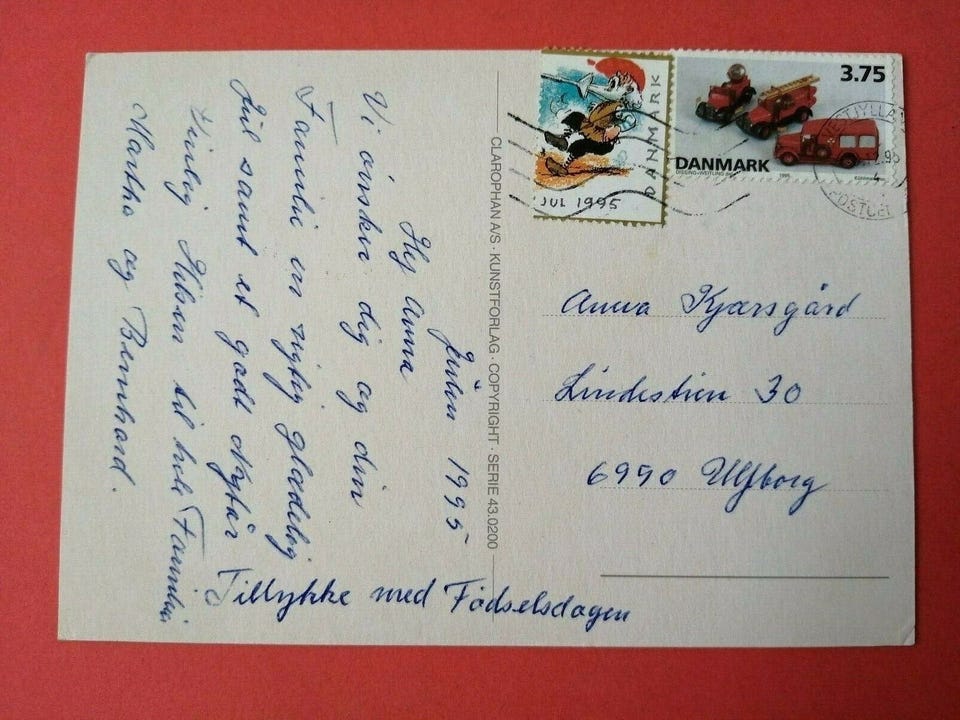 Julen 1995
Hej Anna
Vi ønsker dig og din
Familie en rigtig glædelig
Jul samt et godt Nytår
Venlig Hilsen til hele Familien
Martha og Bernhard.
Tillykke med Fødselsdagen
CLAROPHAN A/S · KUNSTFORLAG · COPYRIGHT · SERIE 43.0200
DANMARK
JUL 1995
3.75
DANMARK
1995
VESTJYLLAN
POSTCE
Anna Kjærsgård
Lindestien 30
6990 Ulfborg